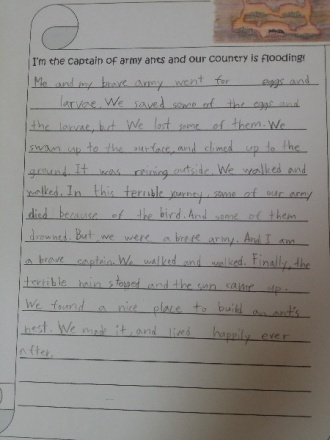 I'm the captain of army ants and our country is flooding!
Me and my brave army went for eggs and
larvae. We saved some of the eggs and
the larvae, but We lost some of them. We
swam up to the surface, and climed up to the
ground. It was raining outside. We walked and
walked. In this terrible journey, some of our army
died because of the bird. And some of them
drowned. But, we were a brave army. And I am
a brave captain. We walked and walked. Finally, the
terrible rain stopped and the sun came up.
We found a nice place to build an ant's
nest. We made it, and lived happily ever
after.